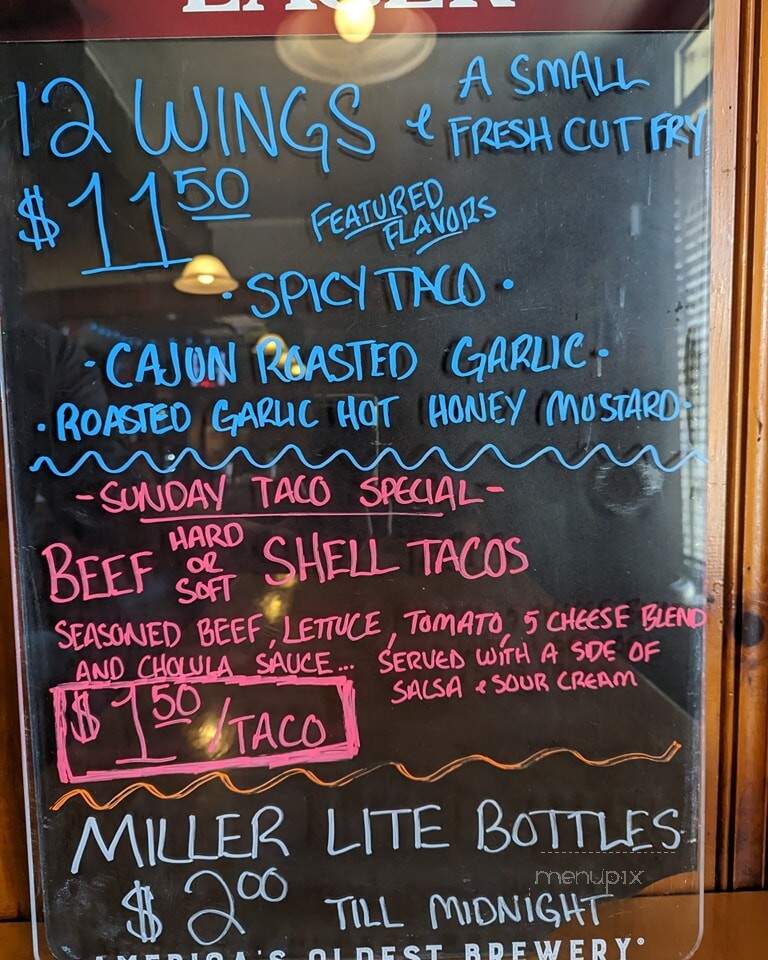 LAGER
12 WINGS & A SMALL
FRESH CUT FRY
$11.50
FEATURED
FLAVORS
• SPICY TACO •
• CAJUN ROASTED GARLIC •
• ROASTED GARLIC HOT HONEY MUSTARD •
- SUNDAY TACO SPECIAL -
BEEF HARD OR SOFT SHELL TACOS
SEASONED BEEF, LETTUCE, TOMATO, 5 CHEESE BLEND
AND CHOLULA SAUCE... SERVED WITH A SIDE OF
SALSA & SOUR CREAM
$1.50/TACO
MILLER LITE BOTTLES
menupix
$2.00 TILL MIDNIGHT
AMERICA'S OLDEST BREWERY®